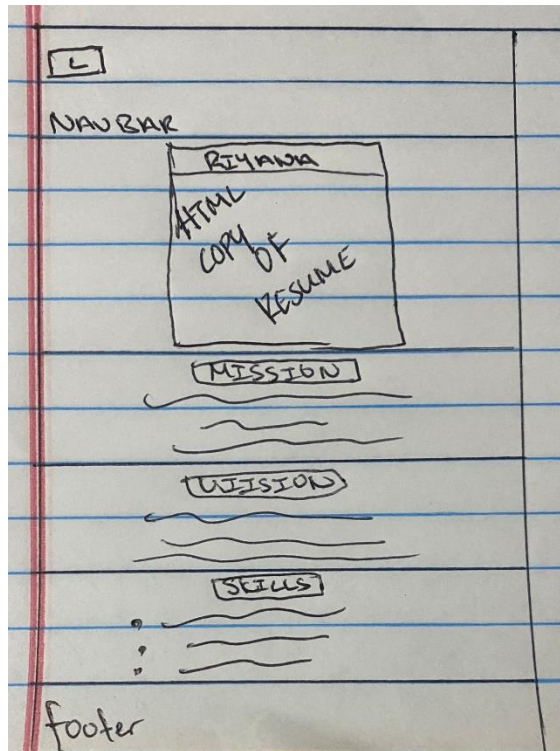 L
NAVBAR
RIYANA
HTML
COPY
OF
RESUME
MISSION
VIISION
SKILLS
footer